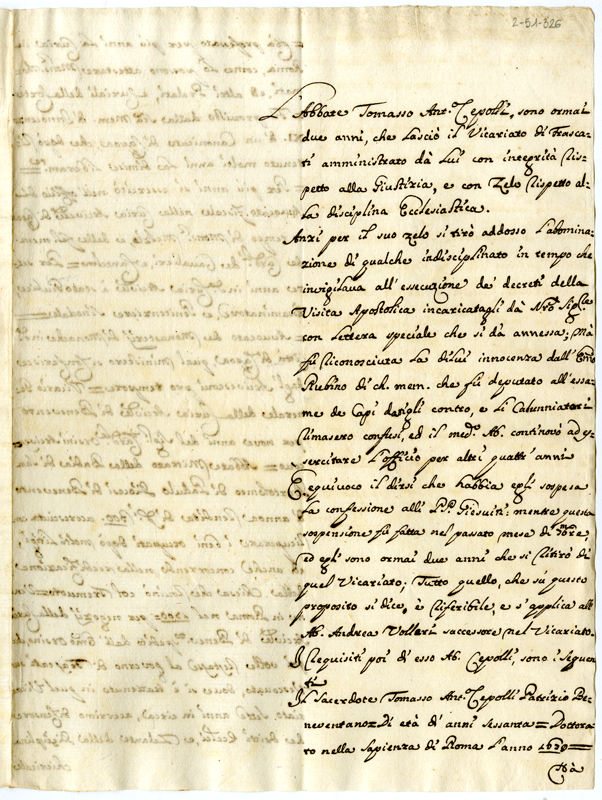 2-51-326
L'Abbate Tomasso Ant.º Cepolli, sono ormai
due anni, che lasciò il Vicariato di Frasca-
ti amministrato dà lui con integrità ris-
petto alla Giustizia, e con zelo rispetto al-
la disciplina Ecclesiastica.
Anzi per il suo zelo si tirò addosso l'abomina-
zione di qualche indisciplinato in tempo che
invigilava all'essecuzione de' decreti della
Visita Apostolica incaricatagli dà
con lettera speciale che si dà annessa; mà
fù riconosciuta la di lui innocenza dall'
Rubino di ch. mem. che fù deputato all'essa-
me de Capi datigli contro, e li Calunniatori
rimasero confusi, ed il med.º Ab. continovò ad es-
sercitare l'officio per altri quattr'anni
E equivoco il dirsi che habbia egli sospesa
la confessione alli P.P. Giesuiti: mentre questa
sospensione fù fatta nel passato mese di
ed egli sono ormai due anni che si ritirò di
quel Vicariato; Tutto quello, che sù questo
proposito si dice, è riferibile, e s'applica all'
Ab. Andrea Volleri successore nel Vicariato.
I Requisiti poi di esso Ab. Cepolli, sono i seguen-
ti
Il Sacerdote Tomasso Ant.º Cepolli Patrizio Be-
neventano = Di età di anni sessanta = Dottora-
to nella Sapienza di Roma l'anno 1679 =
Hà